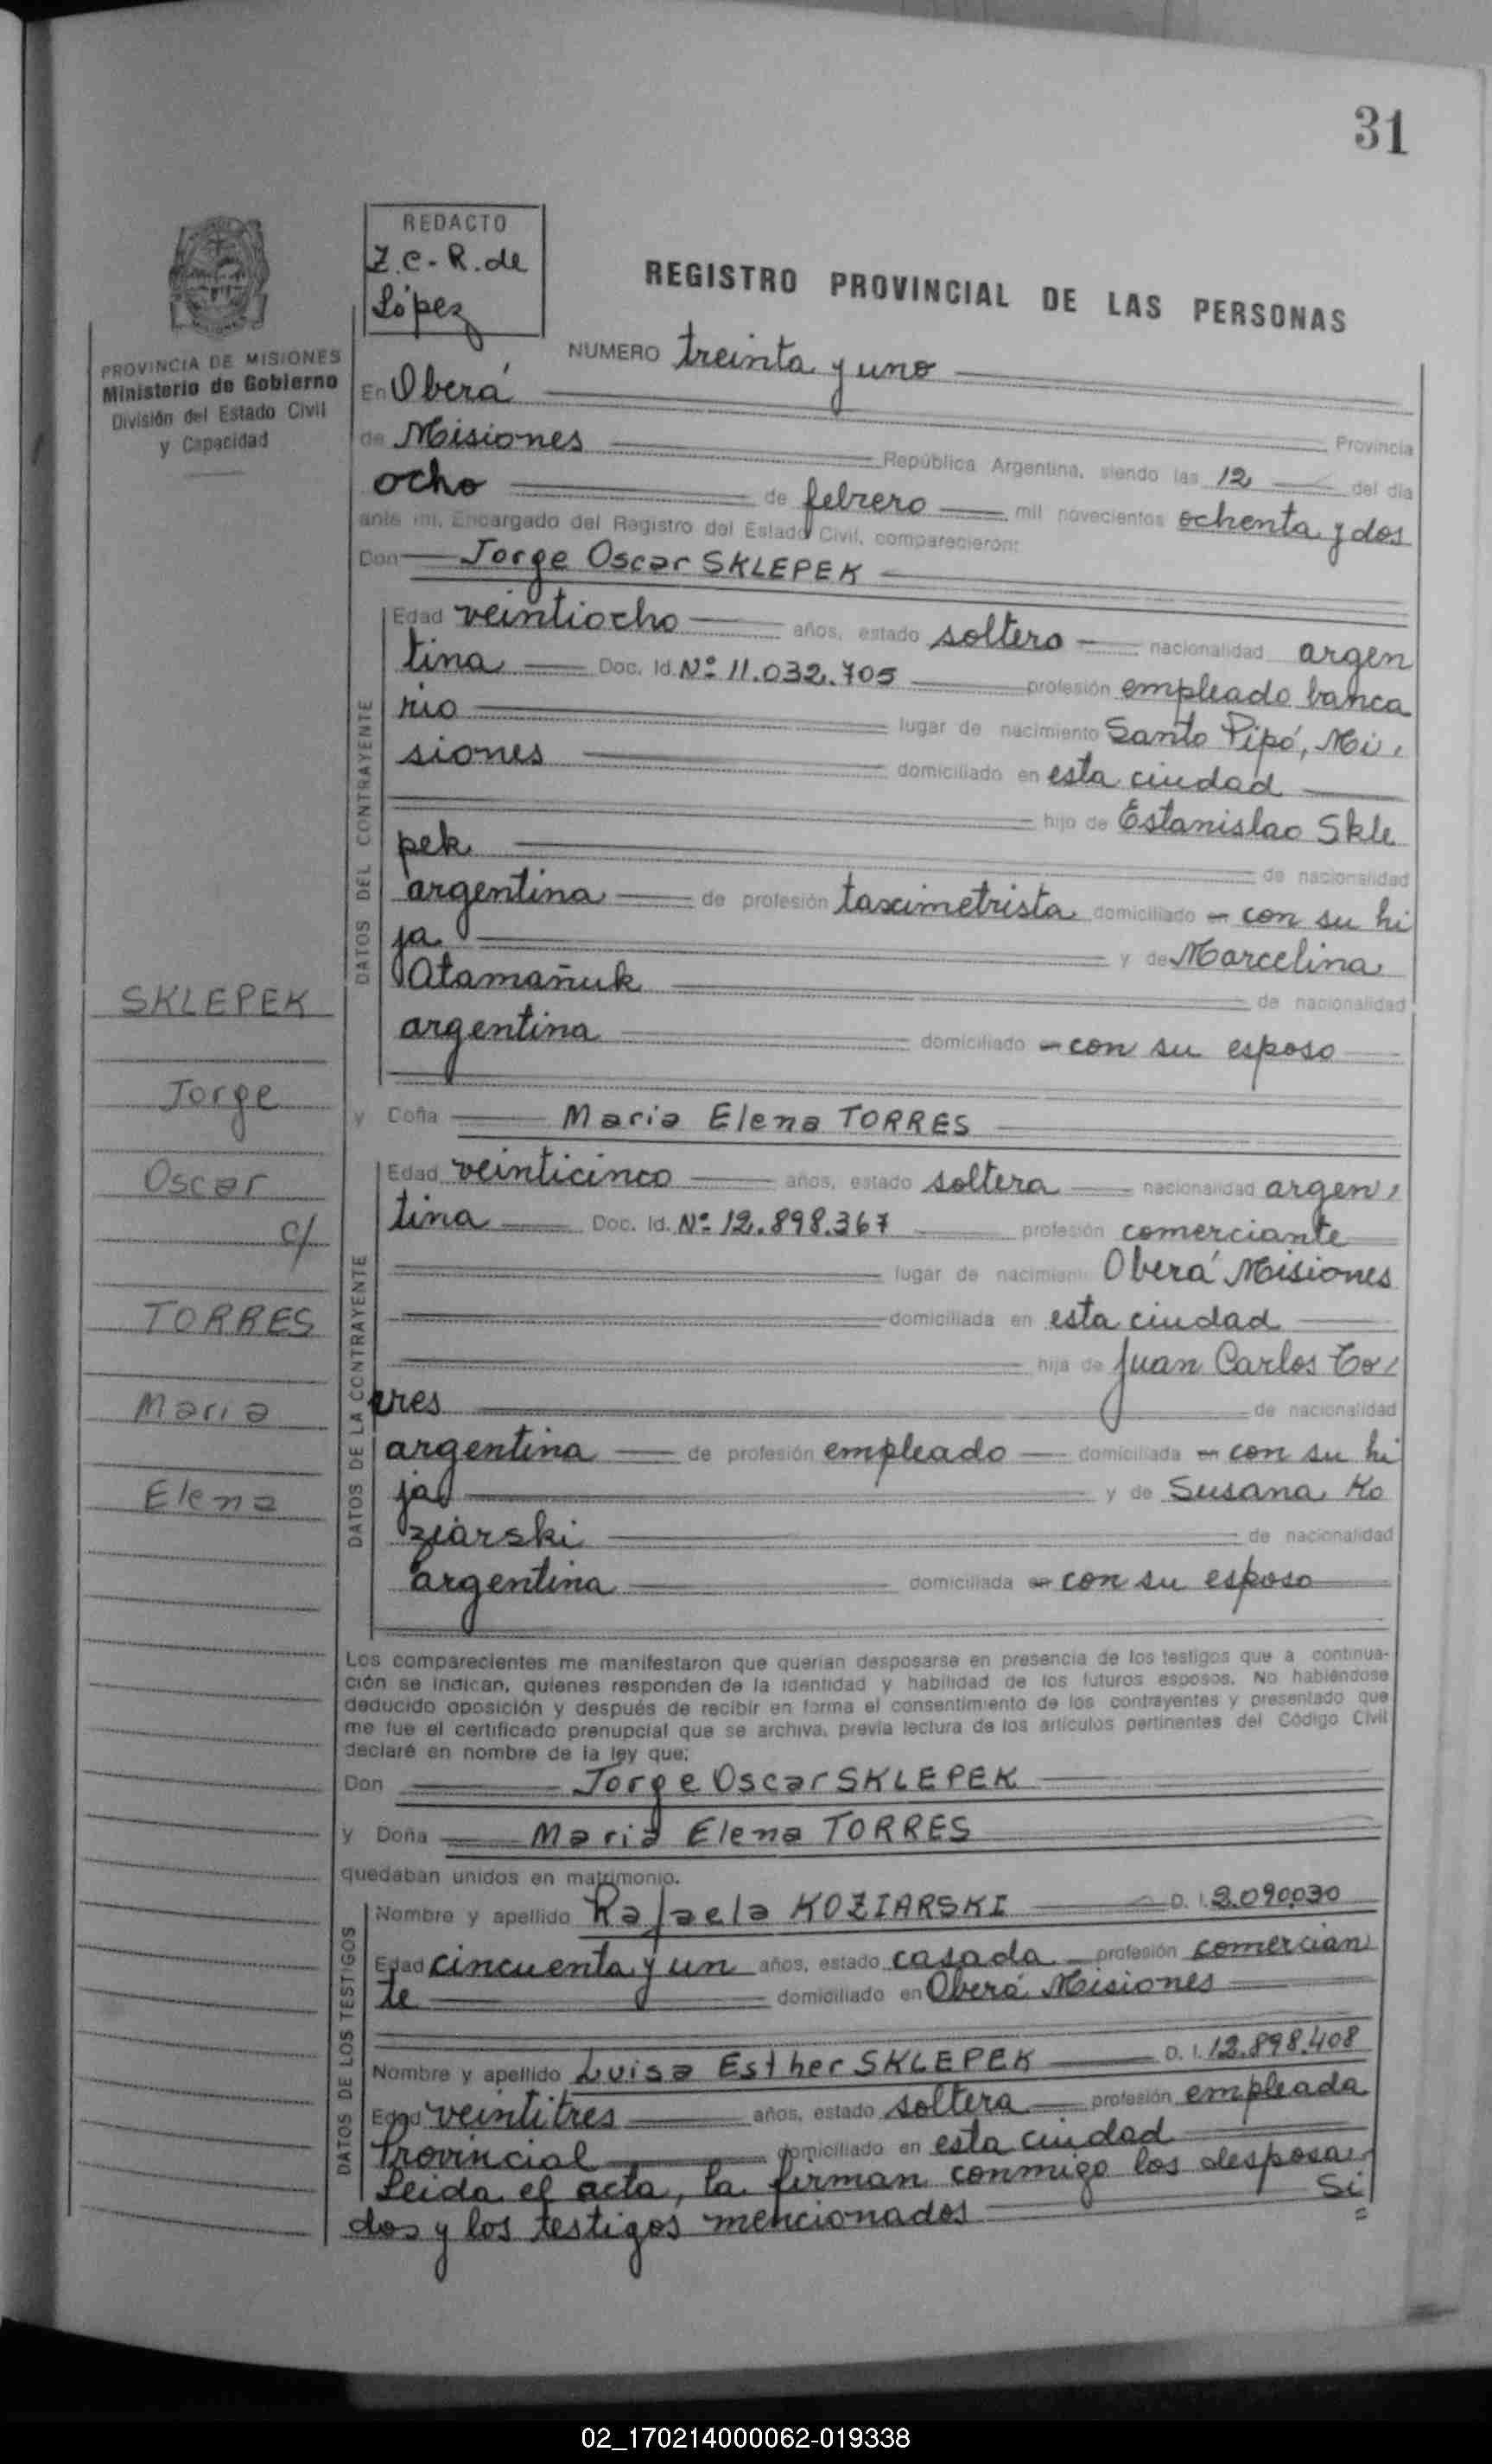 31
REDACTO
Z.C-R.de
López
REGISTRO PROVINCIAL DE LAS PERSONAS
PROVINCIA DE MISIONES
Ministerio de Gobierno
División del Estado Civil
y Capacidad
NUMERO treinta y uno
En Oberá
Provincia
de Misiones República Argentina, siendo las 12 del día
ocho de febrero mil novecientos ochenta y dos
ante mi, Encargado del Registro del Estado Civil, comparecieron:
Don Jorge Oscar SKLEPEK
DATOS DEL CONTRAYENTE
Edad veintiocho años, estado soltero nacionalidad argen
tina Doc. Id. Nº 11.032.705 profesión empleado banca
rio lugar de nacimiento Santo Pipó, Mi,
siones domiciliado en esta ciudad
hijo de Estanislao Skle
pek de nacionalidad
argentina de profesión taximetrista domiciliado en con su hi
ja y de Marcelina
Atamañuk de nacionalidad
argentina domiciliado en con su esposo
y Doña Maria Elena TORRES
DATOS DE LA CONTRAYENTE
Edad veinticinco años, estado soltera nacionalidad argen,
tina Doc. Id. Nº 12.898.367 profesión comerciante
lugar de nacimiento Oberá Misiones
domiciliada en esta ciudad
hija de Juan Carlos To/
rres de nacionalidad
argentina de profesión empleado domiciliada en con su hi
ja y de Susana Ko
ziarski de nacionalidad
argentina domiciliada en con su esposo
SKLEPEK
Jorge
Oscar
c/
TORRES
Maria
Elena
Los comparecientes me manifestaron que querían desposarse en presencia de los testigos que a continua-
ción se indican, quienes responden de la identidad y habilidad de los futuros esposos. No habiéndose
deducido oposición y después de recibir en forma el consentimiento de los contrayentes y presentado que
me fue el certificado prenupcial que se archiva, previa lectura de los artículos pertinentes del Código Civil
declaré en nombre de la ley que:
Don Jorge Oscar SKLEPEK
y Doña Maria Elena TORRES
quedaban unidos en matrimonio.
DATOS DE LOS TESTIGOS
Nombre y apellido Rafaela KOZIARSKI D. I. 2.090.030
Edad cincuenta y un años, estado casada profesión comercian
te domiciliado en Oberá Misiones
Nombre y apellido Luisa Esther SKLEPEK D. I. 12.898.408
Edad veintitres años, estado soltera profesión empleada
Provincial domiciliado en esta ciudad
Leida el acta, la firman conmigo los desposa
dos y los testigos mencionados Si
02_170214000062-019338